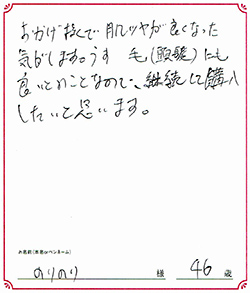 おかげ様で肌ツヤが良くなった
気がします。うす 毛(頭髪)にも
良いとのことなので、継続して購入
したいと思います。
お名前(本名orペンネーム)
のりのり 様 46 歳